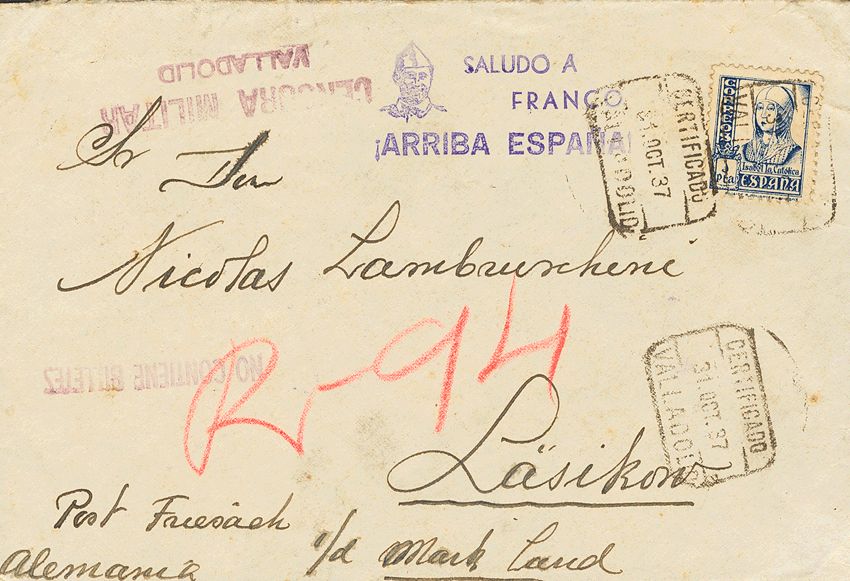 CENSURA MILITAR
VALLADOLID
SALUDO A
FRANCO
¡ARRIBA ESPAÑA!
CERTIFICADO
31 OCT. 37
VALLADOLID
CORREOS
Isabel la Católica
1 pta
ESPAÑA
Sr Don
Nicolas
R-94
NO CONTIENE BILLETES
CERTIFICADO
31 OCT. 37
VALLADOLID
Läsikow
Post Friesack
i/d Mark Land
Alemania